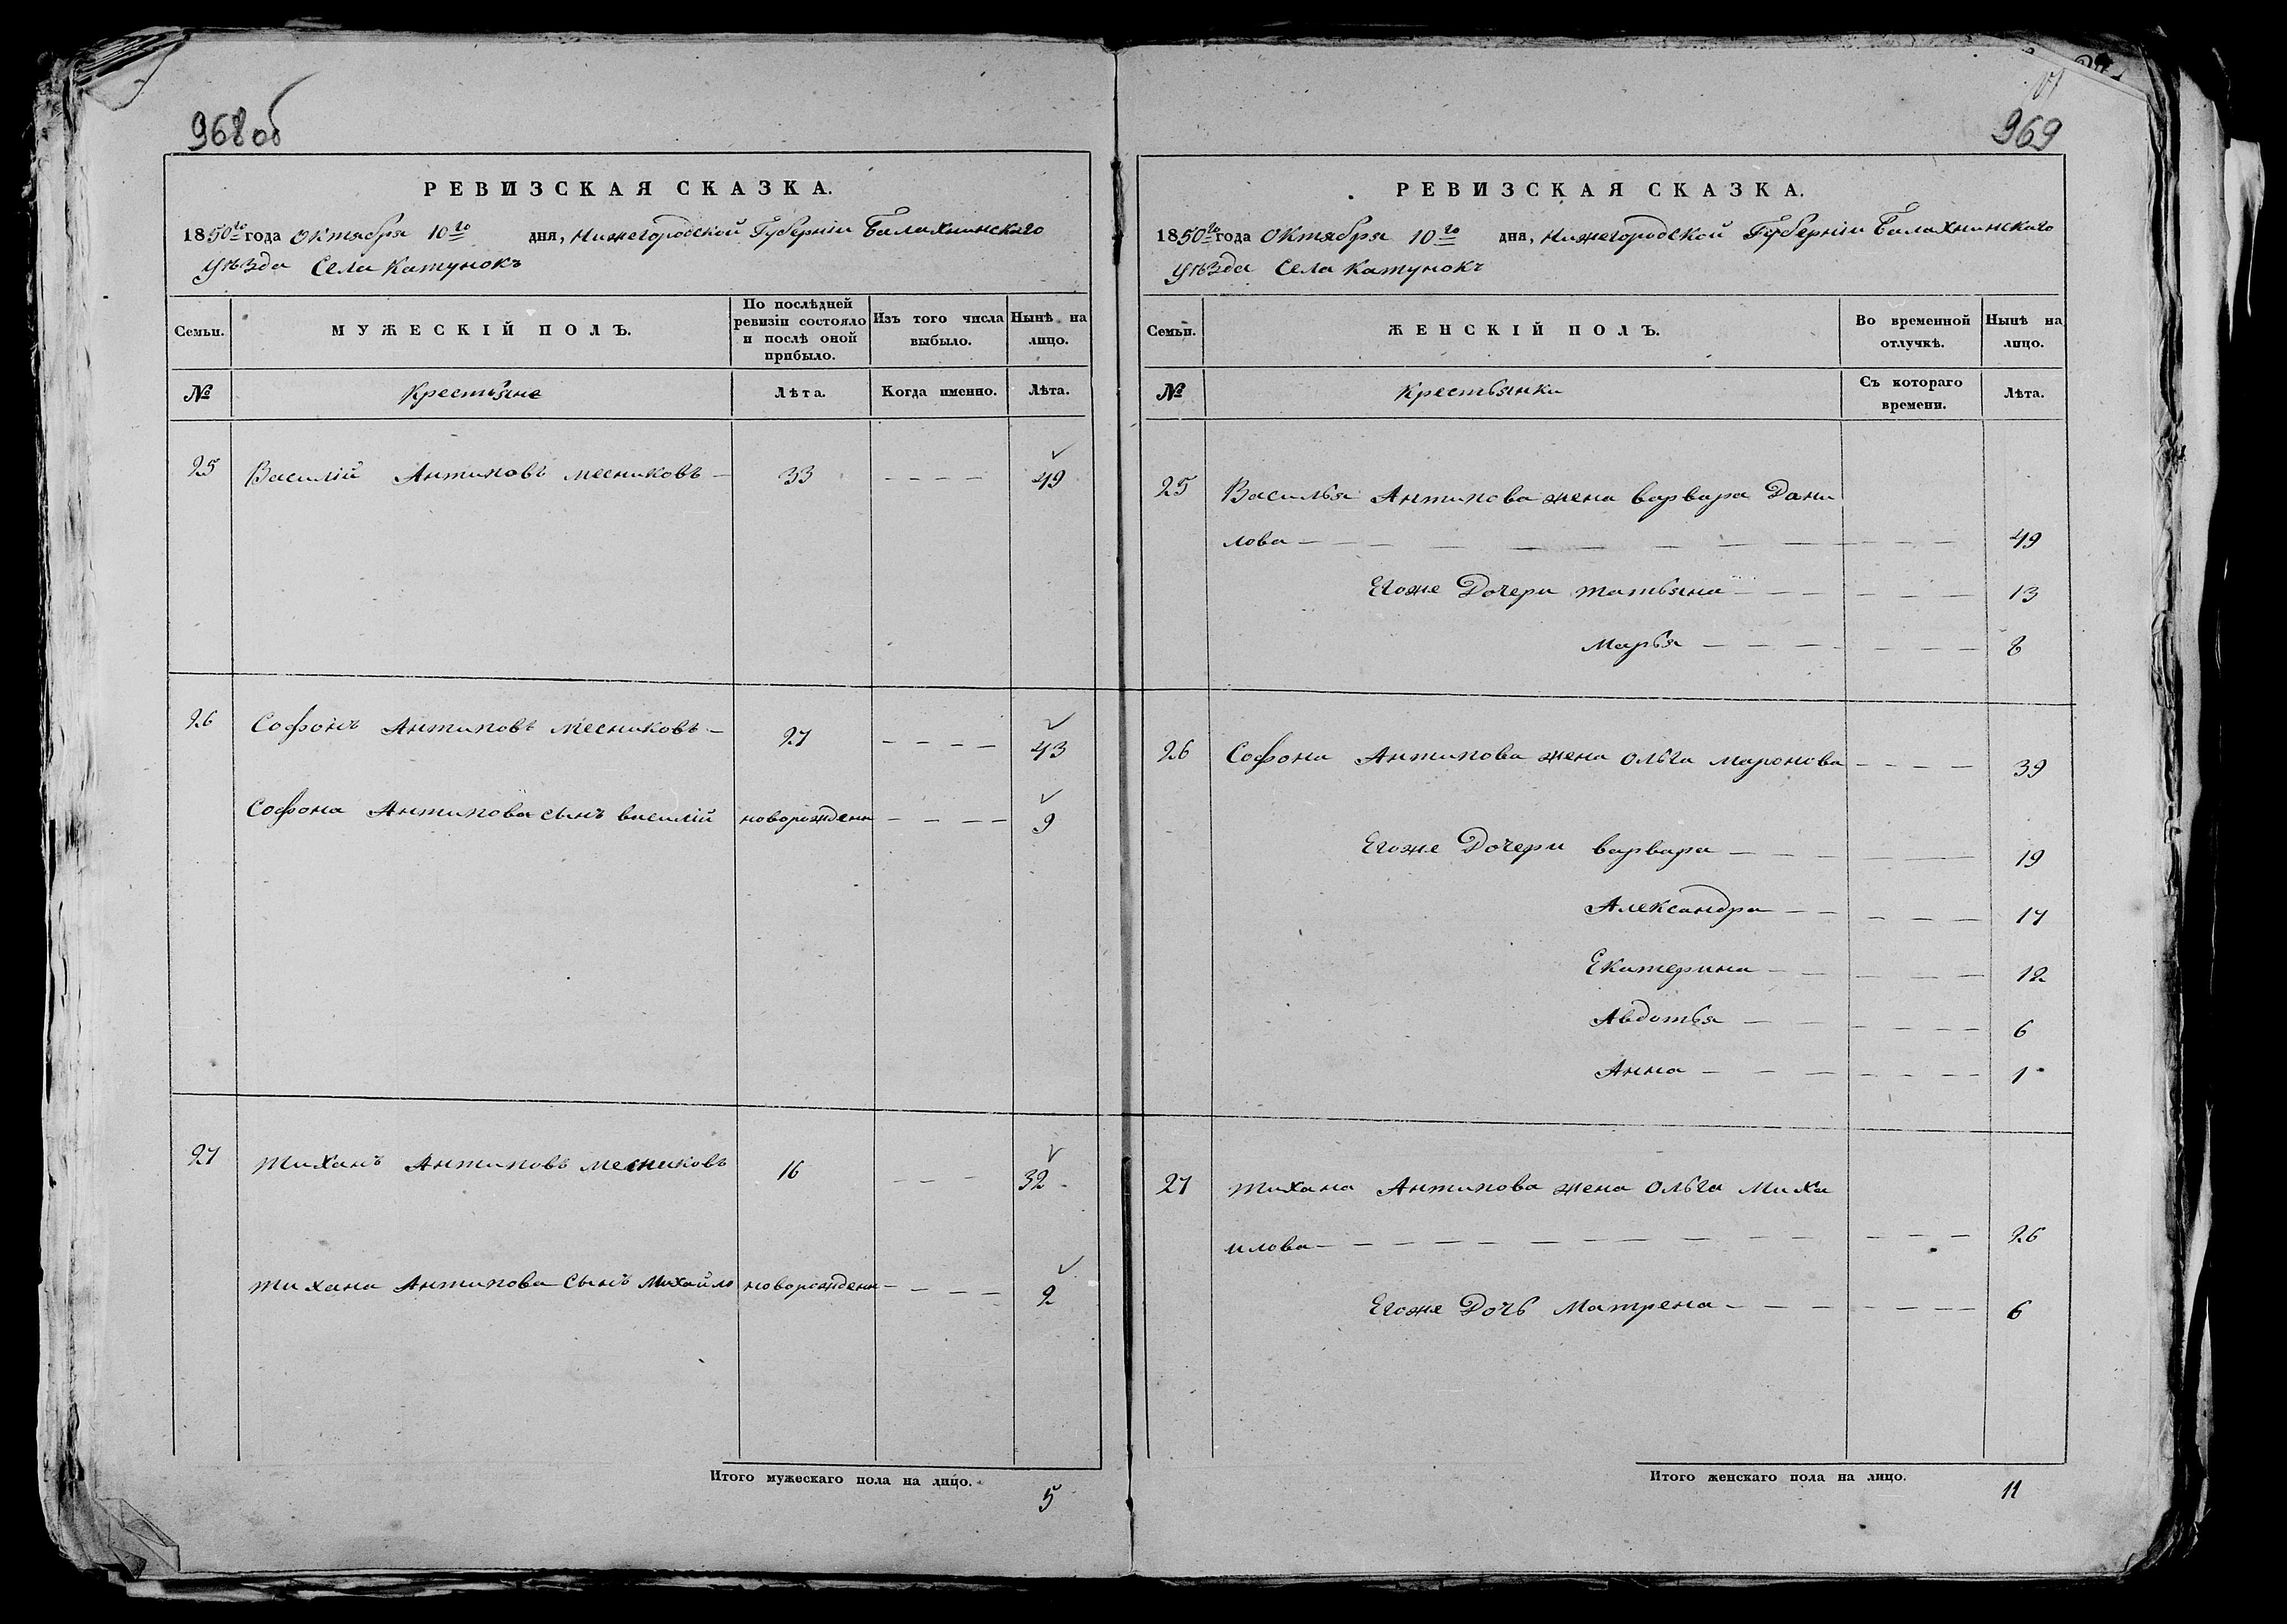 968 об
РЕВИЗСКАЯ СКАЗКА.
1850го года Октября 10го дня, Нижегородской Губерніи Балахнинскаго
Уѣзда Села Катунокъ
Семьи.
МУЖЕСКІЙ ПОЛЪ.
По послѣдней ревизіи состояло и послѣ оной прибыло.
Изъ того числа выбыло.
Нынѣ на лицо.
№
Крестьяне
Лѣта.
Когда именно.
Лѣта.
25 Василій Антиповъ месниковъ — 33 - - - - 49
26 Софонъ Антиповъ месниковъ — 27 - - - - 43
Софона Антипова сынъ василій новорожденн - - - - 9
27 тиханъ Антиповъ месниковъ 16 - - - 32
тихана Антипова Сынъ Михайло новорожденн - - - - 2
Итого мужескаго пола на лицо. 5
969
РЕВИЗСКАЯ СКАЗКА.
1850го года Октября 10го дня, Нижегородской Губерніи Балахнинскаго
Уѣзда Села Катунокъ
Семьи.
ЖЕНСКІЙ ПОЛЪ.
Во временной отлучкѣ.
Нынѣ на лицо.
№
Крестьянки
Съ котораго времени.
Лѣта.
25 Василья Антипова жена варвара Дани
лова — 49
Егоже Дочери татьяна — 13
Марья — 8
26 Софона Антипова жена Ольга Маронова — 39
Егоже Дочери варвара — 19
Александра — 17
Екатерина — 12
Авдотья — 6
Анна — 1
27 тихана Антипова жена Ольга Миха
илова — 26
Егоже Дочь Матрена — 6
Итого женскаго пола на лицо. 11